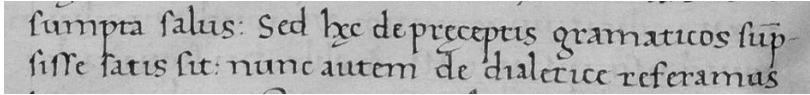 ſumpta ſalus: Sed hęc de pręceptis gramaticos ſup̅-
ſiſſe ſatis ſit: nunc autem de dialetice referamus